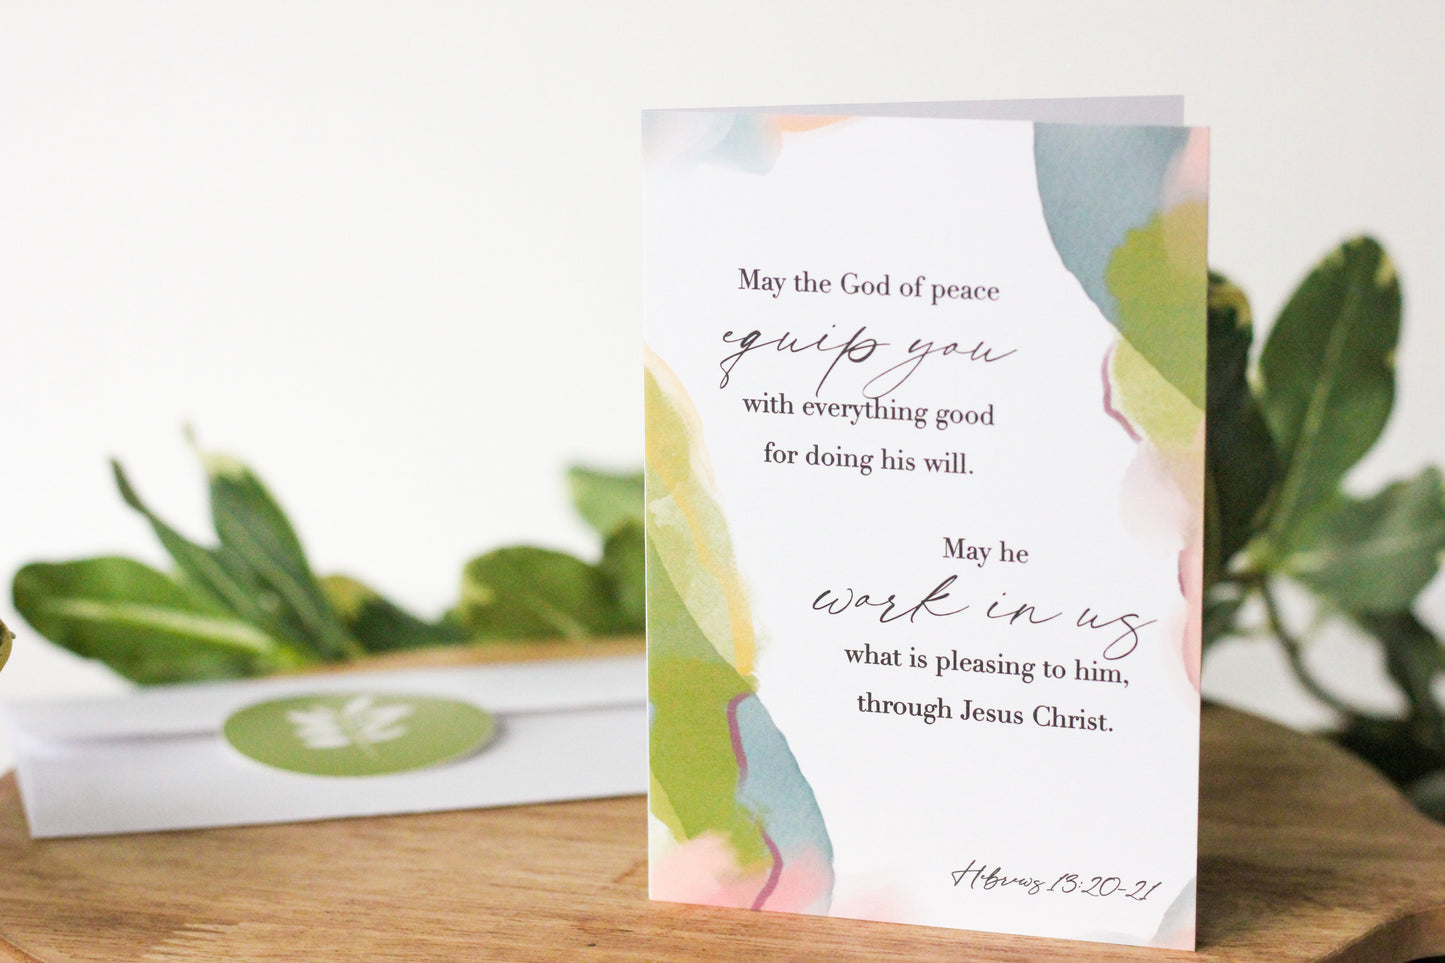 May the God of peace
equip you
with everything good
for doing his will.
May he
work in us
what is pleasing to him,
through Jesus Christ.
Hebrews 13:20-21